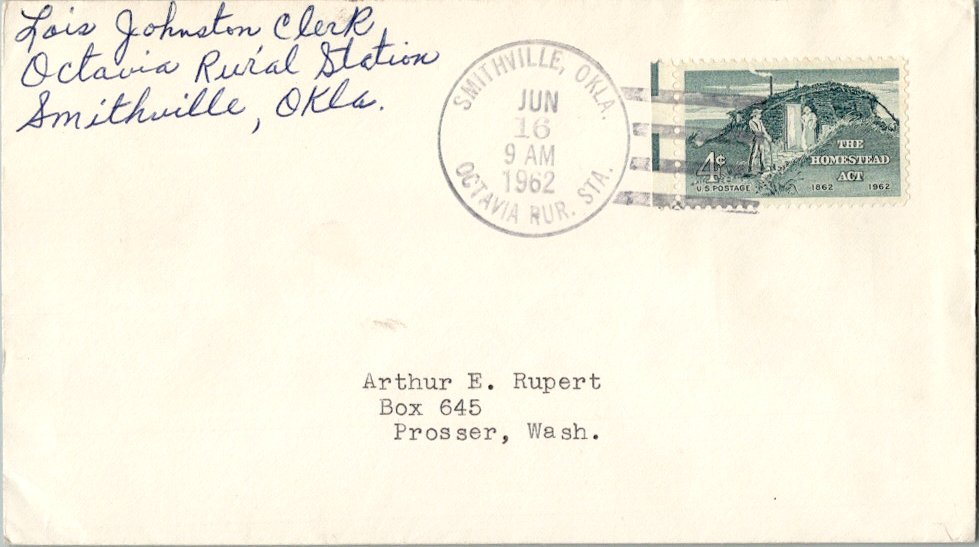 Lois Johnston Clerk,
Octavia Rural Station
Smithville, Okla.
SMITHVILLE, OKLA.
JUN
16
9 AM
1962
OCTAVIA RUR. STA.
THE
HOMESTEAD
ACT
4¢
U.S. POSTAGE 1862 1962
Arthur E. Rupert
Box 645
Prosser, Wash.